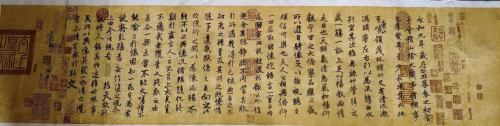 永和九年歲在癸丑暮春之初會
于會稽山陰之蘭亭脩禊事
也羣賢畢至少長咸集此地
有峻領茂林脩竹又有清流激
湍暎帶左右引以為流觴曲水
列坐其次雖無絲竹管弦之
盛一觴一詠亦足以暢敘幽情
是日也天朗氣清惠風和暢仰
觀宇宙之大俯察品類之盛
所以遊目騁懷足以極視聽之
娛信可樂也夫人之相與俯仰
一世或取諸懷抱悟言一室之內
或因寄所託放浪形骸之外雖
趣舍萬殊靜躁不同當其欣
於所遇蹔得於己怏然自足不
知老之將至及其所之既惓情
隨事遷感慨係之矣向之所
欣俛仰之間以為陳迹猶不
能不以之興懷況脩短隨化終
期於盡古人云死生亦大矣豈
不痛哉每攬昔人興感之由
若合一契未嘗不臨文嗟悼不
能喻之於懷固知一死生為虛
誕齊彭殤為妄作後之視今
亦由今之視昔悲夫故列
敘時人錄其所述雖世殊事
異所以興懷其致一也後之攬
者亦將有感於斯文